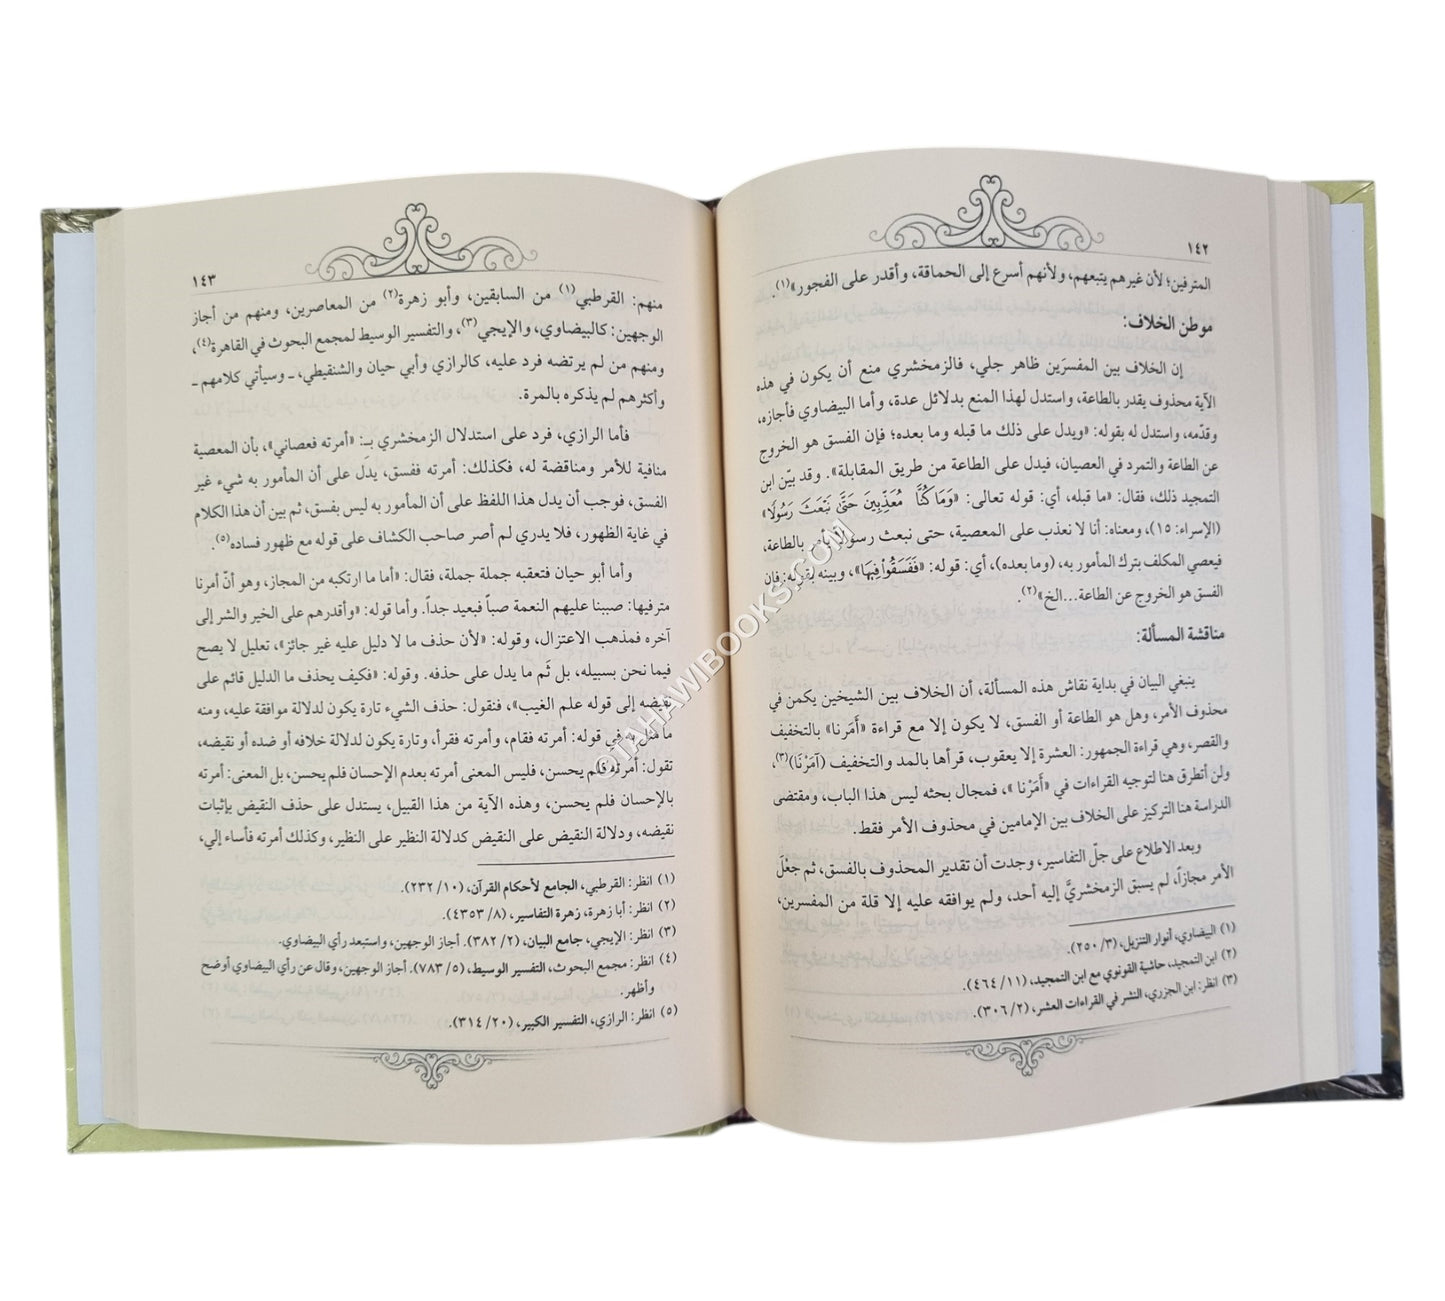 ١٤٢
المترفين؛ لأن غيرهم يتبعهم، ولأنهم أسرع إلى الحماقة، وأقدر على الفجور»(١).
موطن الخلاف:
إن الخلاف بين المفسرَين ظاهر جلي، فالزمخشري منع أن يكون في هذه
الآية محذوف يقدر بالطاعة، واستدل لهذا المنع بدلائل عدة، وأما البيضاوي فأجازه،
وقدّمه، واستدل له بقوله: «ويدل على ذلك ما قبله وما بعده؛ فإن الفسق هو الخروج
عن الطاعة والتمرد في العصيان، فيدل على الطاعة من طريق المقابلة». وقد بيّن ابن
التمجيد ذلك، فقال: «ما قبله، أي: قوله تعالى: «وَمَا كُنَّا مُعَذِّبِينَ حَتَّى نَبْعَثَ رَسُولًا»
(الإسراء: ١٥)، ومعناه: أنا لا نعذب على المعصية، حتى نبعث رسولاً يأمر بالطاعة،
فيعصي المكلف بترك المأمور به، (وما بعده)، أي: قوله: «فَفَسَقُواْ فِيهَا»، وبينه بقوله: فإن
الفسق هو الخروج عن الطاعة...الخ»(٢).
مناقشة المسألة:
ينبغي البيان في بداية نقاش هذه المسألة، أن الخلاف بين الشيخين يكمن في
محذوف الأمر، وهل هو الطاعة أو الفسق، لا يكون إلا مع قراءة «أَمَرنا» بالتخفيف
والقصر، وهي قراءة الجمهور: العشرة إلا يعقوب، قرأها بالمد والتخفيف (آمَرْنَا)(٣)،
ولن أتطرق هنا لتوجيه القراءات في «أَمَرْنا »، فمجال بحثه ليس هذا الباب، ومقتضى
الدراسة هنا التركيز على الخلاف بين الإمامين في محذوف الأمر فقط.
وبعد الاطلاع على جلّ التفاسير، وجدت أن تقدير المحذوف بالفسق، ثم جعْلَ
الأمر مجازاً، لم يسبق الزمخشريَّ إليه أحد، ولم يوافقه عليه إلا قلة من المفسرين،
(١) البيضاوي، أنوار التنزيل، (٣/ ٢٥٠).
(٢) ابن التمجيد، حاشية القونوي مع ابن التمجيد، (١١/ ٤٦٤).
(٣) انظر: ابن الجزري، النشر في القراءات العشر، (٢/ ٣٠٦).
١٤٣
منهم: القرطبي(١) من السابقين، وأبو زهرة(٢) من المعاصرين، ومنهم من أجاز
الوجهين: كالبيضاوي، والإيجي(٣)، والتفسير الوسيط لمجمع البحوث في القاهرة(٤)،
ومنهم من لم يرتضه فرد عليه، كالرازي وأبي حيان والشنقيطي، ـ وسيأتي كلامهم ـ
وأكثرهم لم يذكره بالمرة.
فأما الرازي، فرد على استدلال الزمخشري بـِ: «أمرته فعصاني»، بأن المعصية
منافية للأمر ومناقضة له، فكذلك: أمرته ففسق، يدل على أن المأمور به شيء غير
الفسق، فوجب أن يدل هذا اللفظ على أن المأمور به ليس بفسق، ثم بين أن هذا الكلام
في غاية الظهور، فلا يدري لم أصر صاحب الكشاف على قوله مع ظهور فساده(٥).
وأما أبو حيان فتعقبه جملة جملة، فقال: «أما ما ارتكبه من المجاز، وهو أنّ أمرنا
مترفيها: صببنا عليهم النعمة صباً فبعيد جداً. وأما قوله: «وأقدرهم على الخير والشر إلى
آخره فمذهب الاعتزال، وقوله: «لأن حذف ما لا دليل عليه غير جائز»، تعليل لا يصح
فيما نحن بسبيله، بل ثَم ما يدل على حذفه. وقوله: «فكيف يحذف ما الدليل قائم على
نقيضه إلى قوله علم الغيب»، فنقول: حذف الشيء تارة يكون لدلالة موافقة عليه، ومنه
ما مثل به في قوله: أمرته فقام، وأمرته فقرأ، وتارة يكون لدلالة خلافه أو ضده أو نقيضه،
تقول: أمرته فلم يحسن، فليس المعنى أمرته بعدم الإحسان فلم يحسن، بل المعنى: أمرته
بالإحسان فلم يحسن، وهذه الآية من هذا القبيل، يستدل على حذف النقيض بإثبات
نقيضه، ودلالة النقيض على النقيض كدلالة النظير على النظير، وكذلك أمرته فأساء إلي،
(١) انظر: القرطبي، الجامع لأحكام القرآن، (١٠/ ٢٣٢).
(٢) انظر: أبا زهرة، زهرة التفاسير، (٨/ ٤٣٥٣).
(٣) انظر: الإيجي، جامع البيان، (٢/ ٣٨٢). أجاز الوجهين، واستبعد رأي البيضاوي.
(٤) انظر: مجمع البحوث، التفسير الوسيط، (٥/ ٧٨٣). أجاز الوجهين، وقال عن رأي البيضاوي أوضح
وأظهر.
(٥) انظر: الرازي، التفسير الكبير، (٢٠/ ٣١٤).
©TAHAWIBOOKS.COM